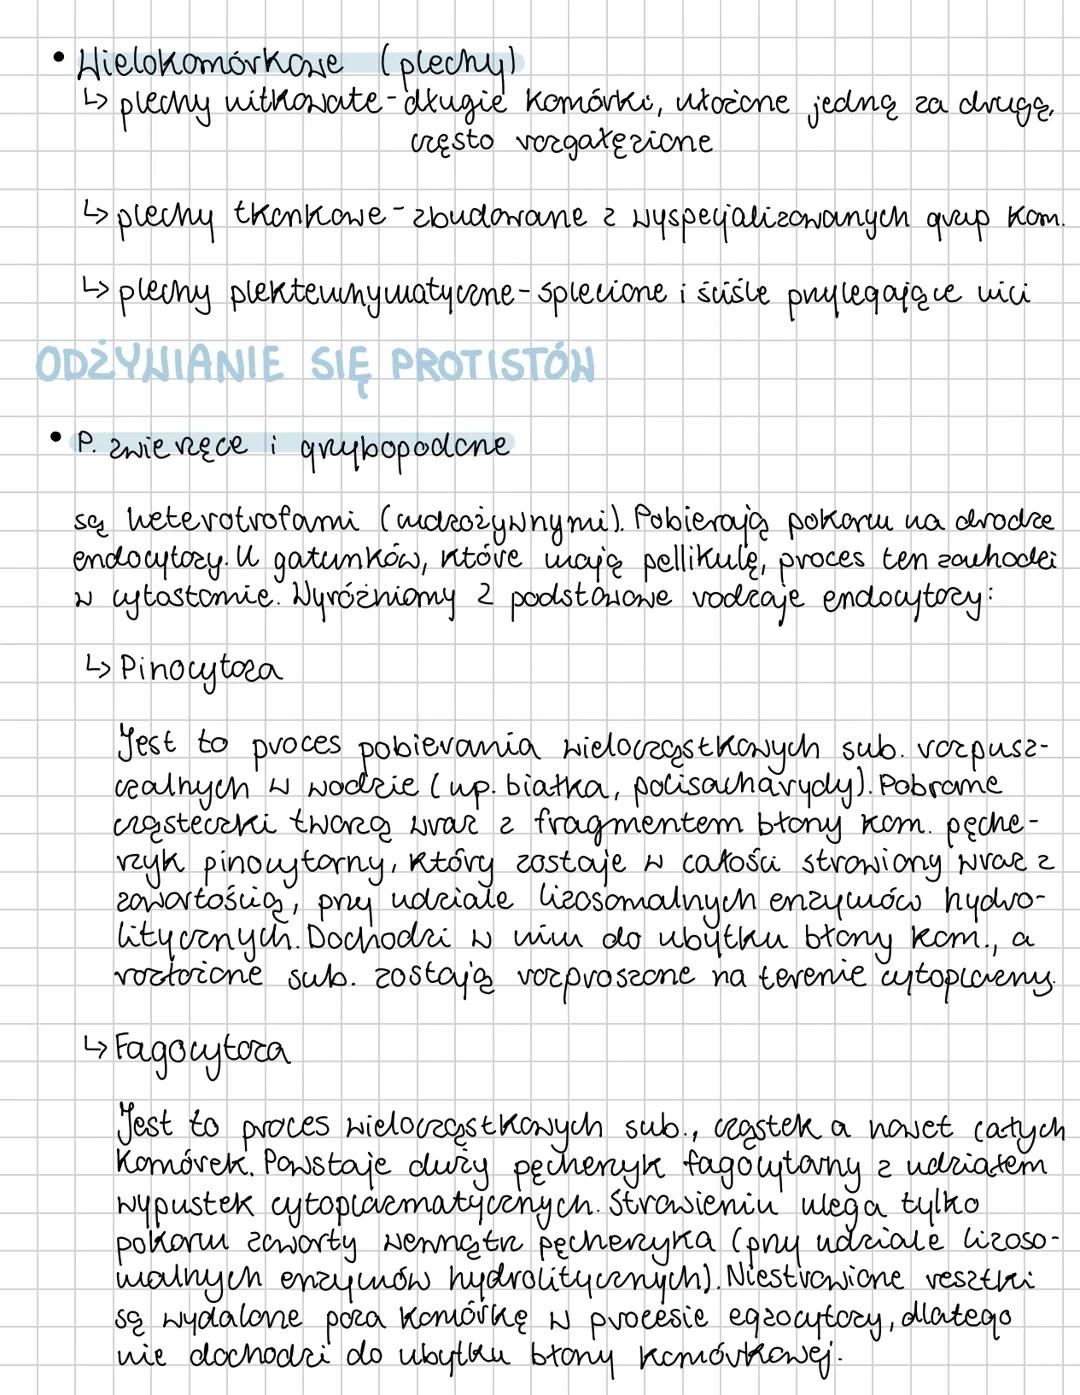 • Wielokomórkowe (plechy)
↳ plechy nitkowate - długie komórki, ułożone jedną za drugą,
często rozgałęzione
↳ plechy tkankowe - zbudowane z wyspecjalizowanych grup kom.
↳ plechy plektenchymatyczne - splecione i ściśle przylegające nici
ODŻYWIANIE SIĘ PROTISTÓW
• P. zwierzęce i grzybopodone
są heterotrofami (cudzożywnymi). Pobierają pokarm na drodze
endocytozy. U gatunków, które mają pellikulę, proces ten zachodzi
w cytostomie. Wyróżniamy 2 podstawowe rodzaje endocytozy:
↳ Pinocytoza
Jest to proces pobierania wielocząstkowych sub. rozpusz-
czalnych w wodzie (np. białka, polisacharydy). Pobrane
cząsteczki tworzą wraz z fragmentem błony kom. pęche-
rzyk pinocytarny, który zostaje w całości strawiony wraz z
zawartością, przy udziale lizosomalnych enzymów hydro-
litycznych. Dochodzi w nim do ubytku błony kom., a
rozłożone sub. zostają rozproszone na terenie cytoplazmy.
↳ Fagocytoza
Jest to proces wielocząstkowych sub., cząstek a nawet całych
komórek. Powstaje duży pęcherzyk fagocytarny z udziałem
wypustek cytoplazmatycznych. Strawieniu ulega tylko
pokarm zawarty wewnątrz pęcherzyka (przy udziale lizoso-
malnych enzymów hydrolitycznych). Niestrawione resztki
są wydalone poza komórkę w procesie egzocytozy, dlatego
nie dochodzi do ubytku błony komórkowej.